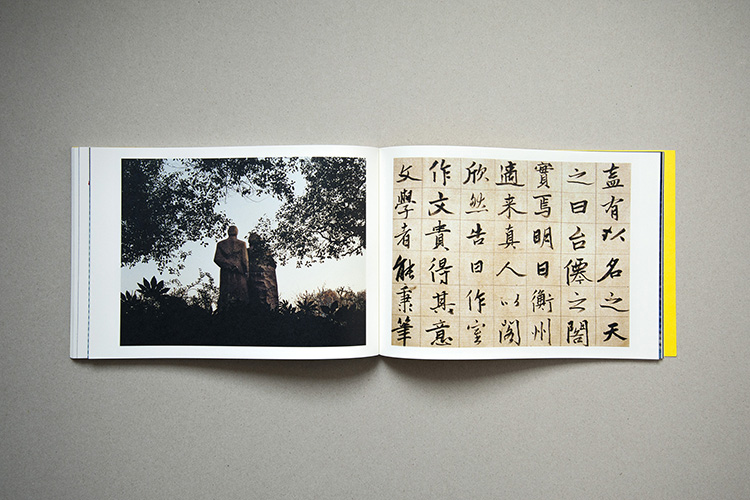 盍有以名之天
之曰台僊之閣
實焉明日衡州
適来真人以閣
欣然告曰作室
作文貴得其意
文學者能秉筆